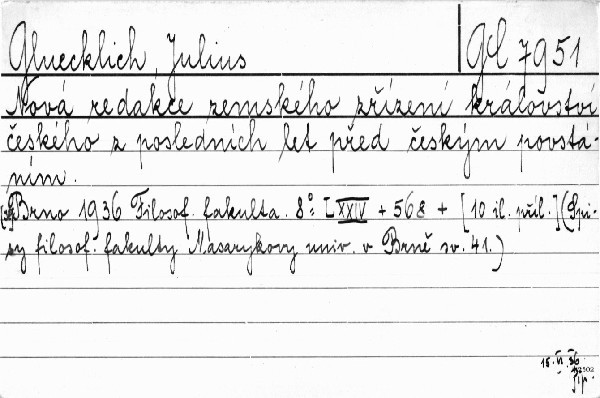 Gluecklich, Julius
Gl 7951
Nová redakce zemského zřízení království
českého z posledních let před českým povstá-
ním.
Brno 1936 Filosof. fakulta. 8°: [XXIV + 568 + [10 il. příl.] (Spi-
sy filosof. fakulty Masarykovy univ. v Brně sv. 41.)
15. VI. 36